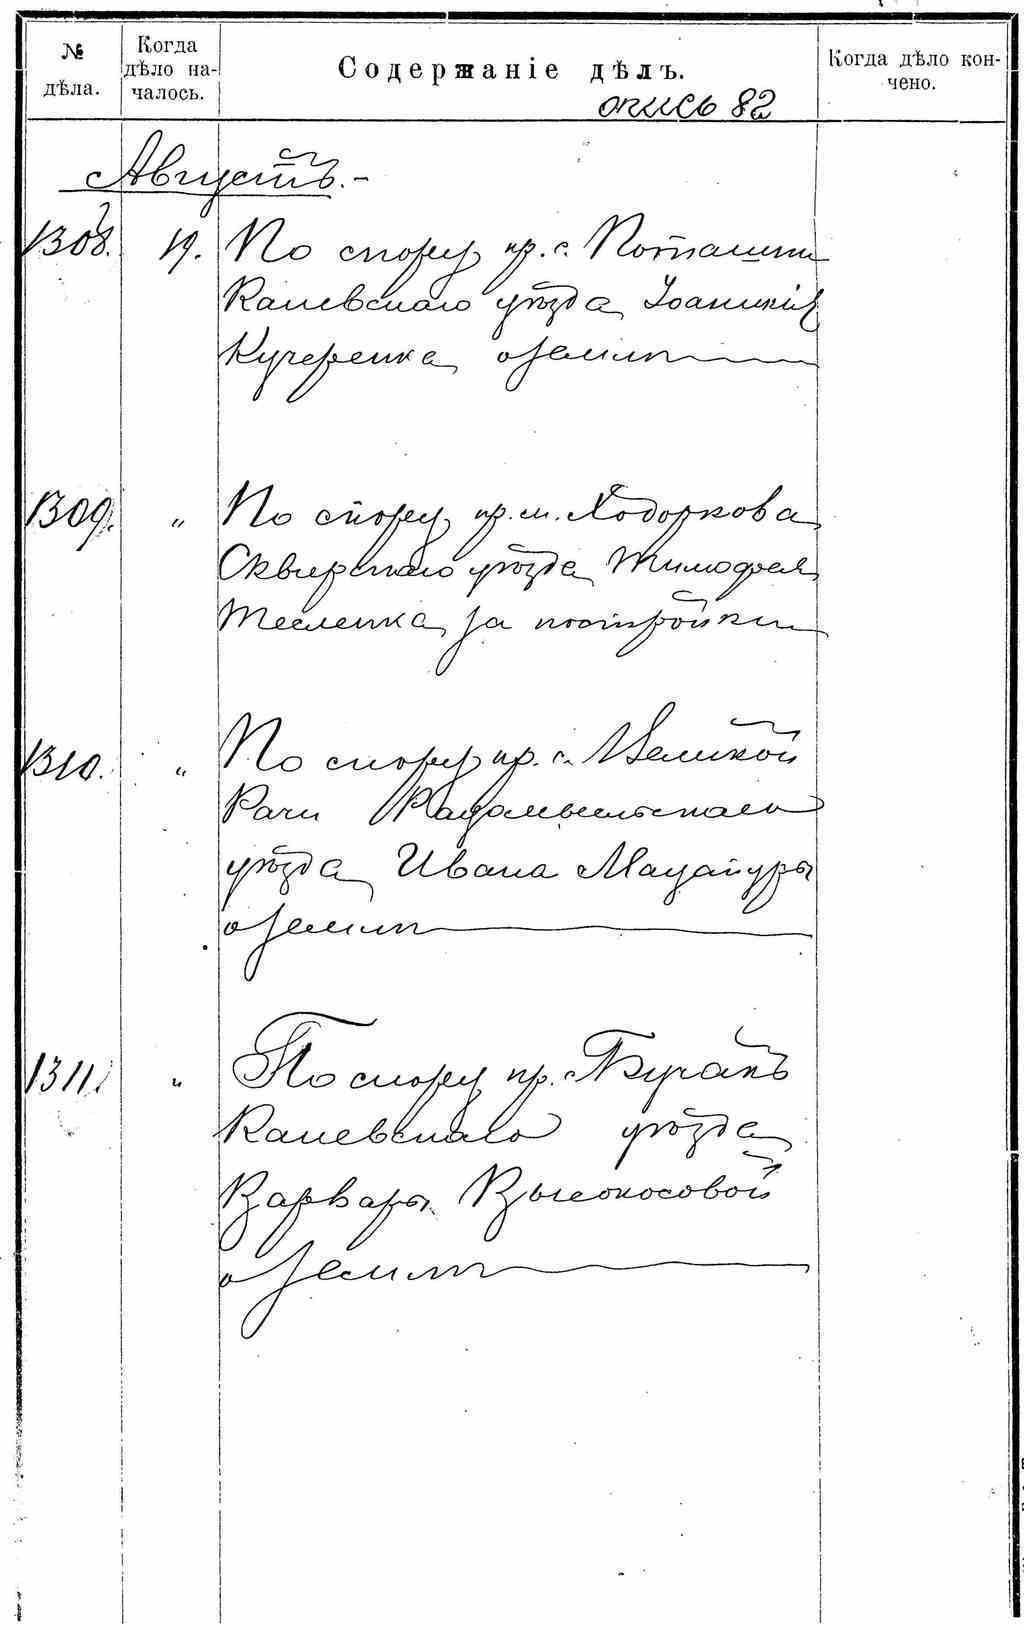 № дѣла. Когда дѣло началось. Содержаніе дѣлъ. Когда дѣло кончено.
опись 82
Августъ.-
1308. 19. По спору пр. с. Поташни
Каневскаго уѣзда Іоаникія
Кучеренка о землѣ
1309. " По спору пр. м. Ходоркова
Сквирскаго уѣзда Тимофея
Тесленка за постройки
1310. " По спору пр. с. Великой
Рачи Радомысльскаго
уѣзда Ивана Мацапуры
о землѣ
1311. " По спору пр. с. Бучакъ
Каневскаго уѣзда
Варвары Высокосовой
о землѣ